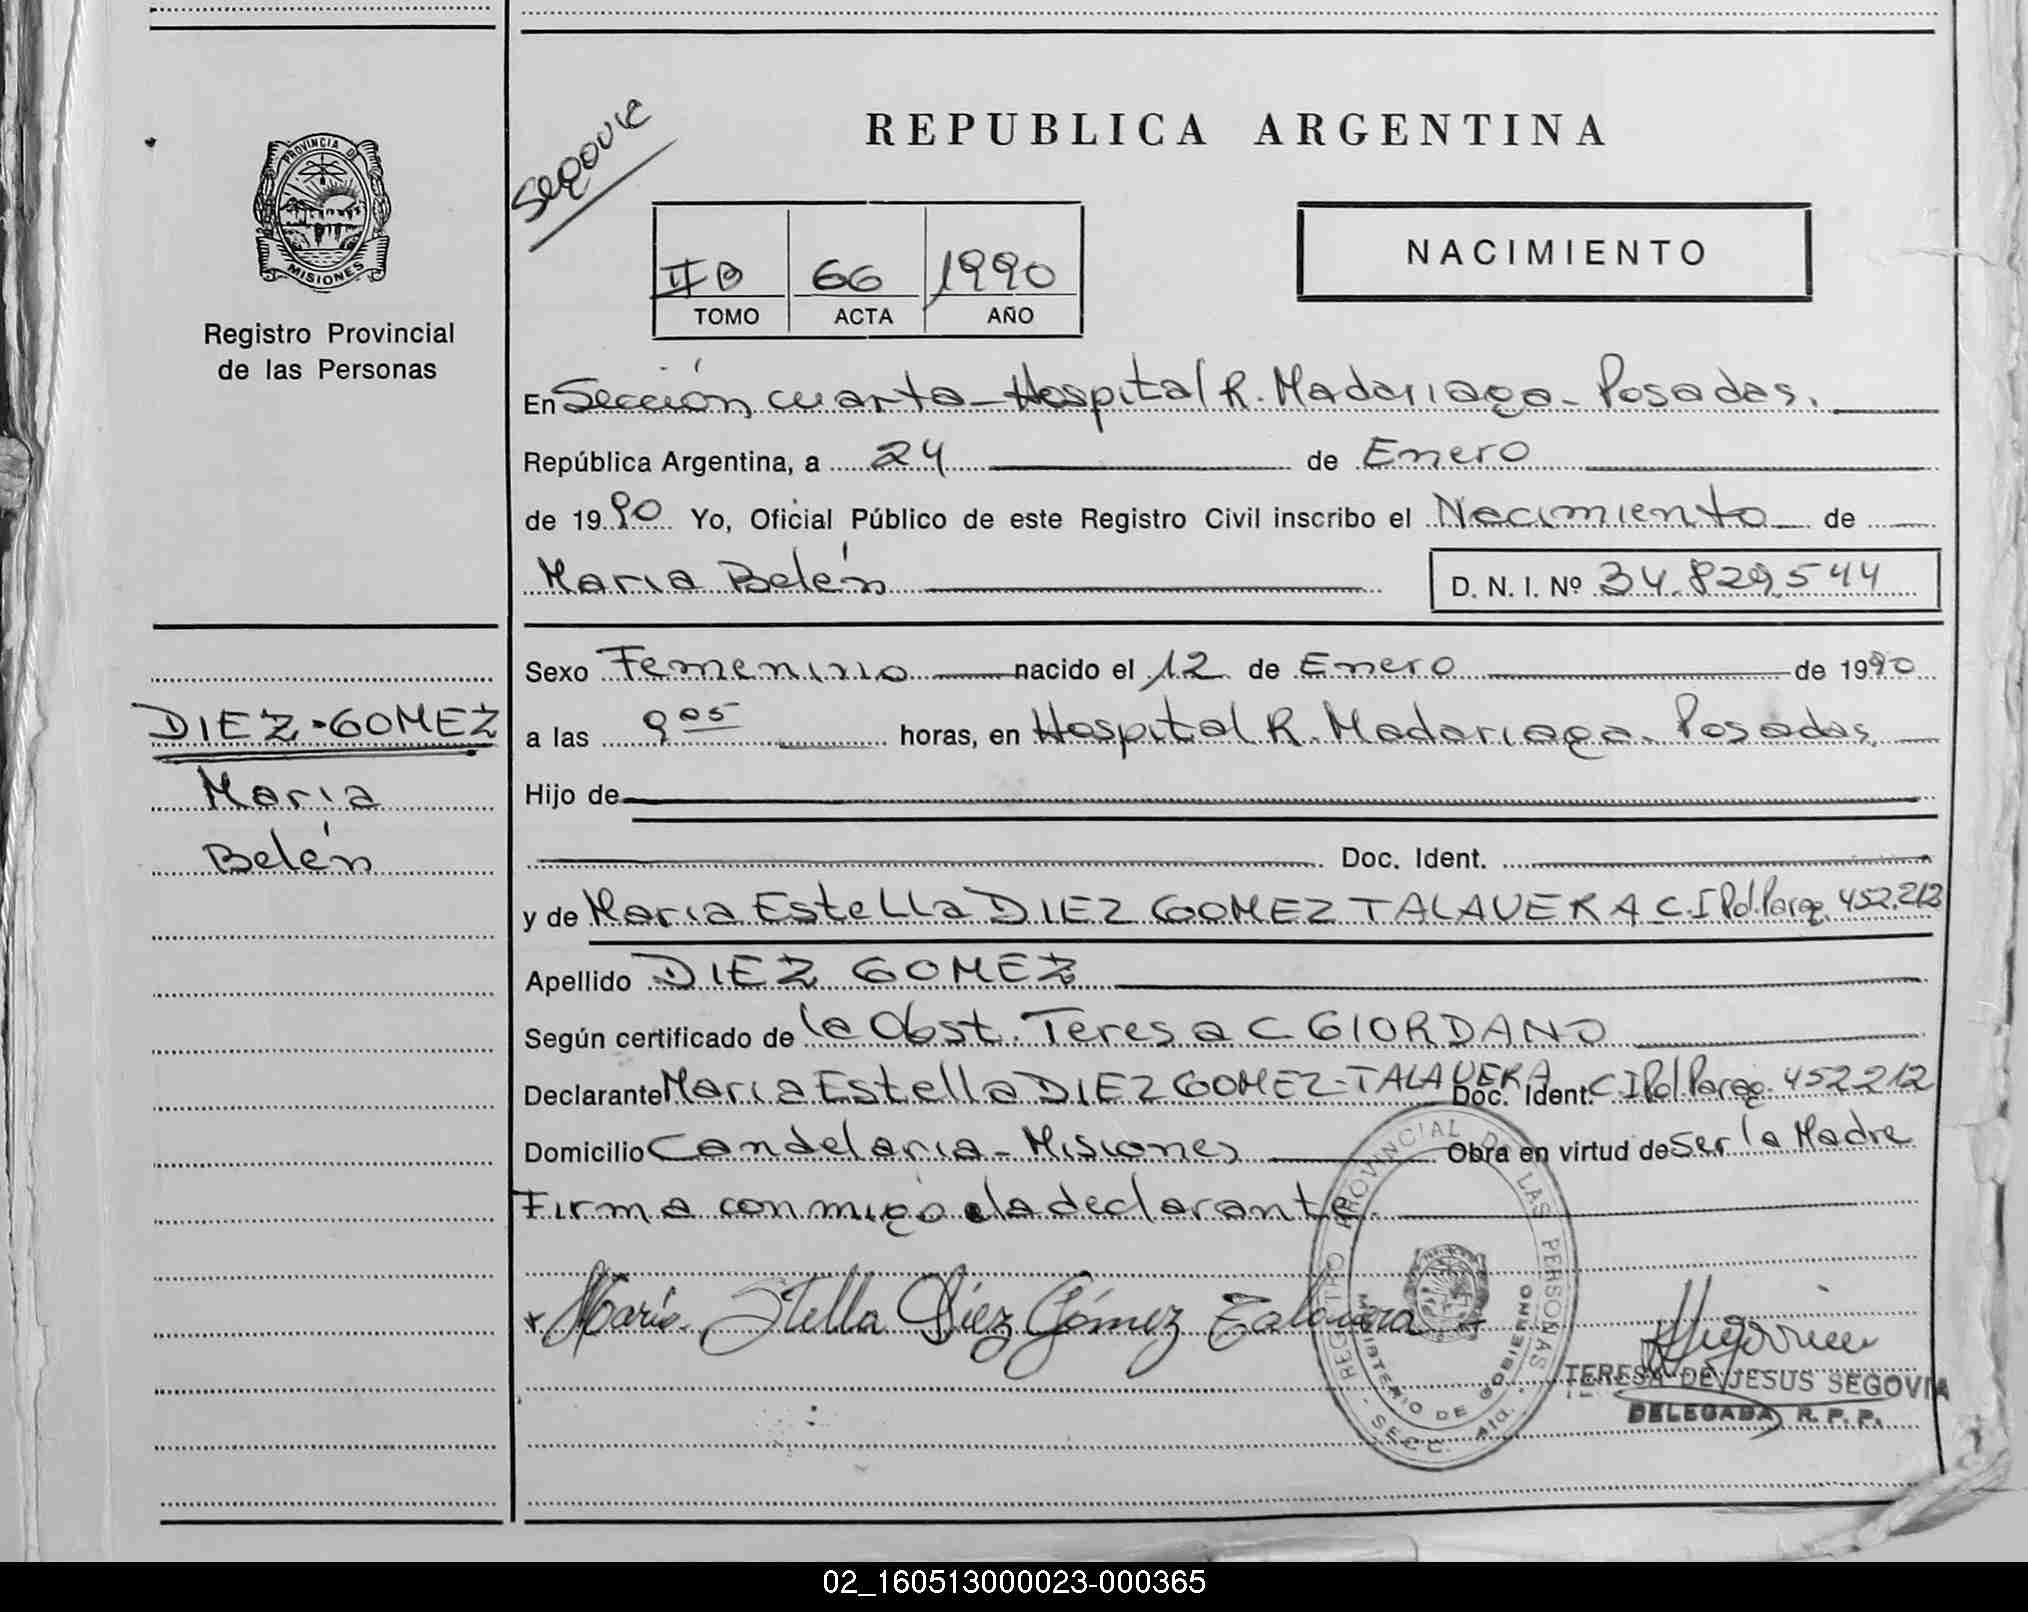 REPUBLICA ARGENTINA
Segovia
PROVINCIA D
MISIONES
Registro Provincial
de las Personas
NACIMIENTO
II B 66 1990
TOMO ACTA AÑO
En Sección cuarta - Hospital R. Madariaga - Posadas.
República Argentina, a 24 de Enero
de 1990 Yo, Oficial Público de este Registro Civil inscribo el Nacimiento de
María Belén D. N. I. Nº 34.829.544
Sexo Femenino nacido el 12 de Enero de 1990
DIEZ - GOMEZ
Maria
Belén
a las 9 05 horas, en Hospital R. Madariaga. Posadas.
Hijo de
Doc. Ident.
y de Maria Estella DIEZ GOMEZ TALAVERA C.I Pol. Parag. 452.212
Apellido DIEZ GOMEZ
Según certificado de la Obst. Teresa C GIORDANO
Declarante Maria Estella DIEZ GOMEZ - TALAVERA Doc. Ident. C I Pol. Parag. 452212
Domicilio Candelaria - Misiones Obra en virtud de ser la Madre
Firma conmigo la declarante.
María Stella Diez Gómez Talavera
REGISTRO PROVINCIAL DE LAS PERSONAS
MINISTERIO DE GOBIERNO
- SECC. 4ta. -
TERESA DE JESUS SEGOVIA
DELEGADA R. P. P.
02_160513000023-000365